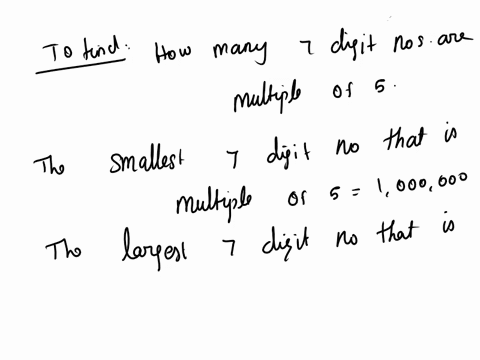 To find: How many 7 digit nos. are
multiple of 5.
The smallest 7 digit no that is
multiple of 5 = 1,000,000
The largest 7 digit no that is